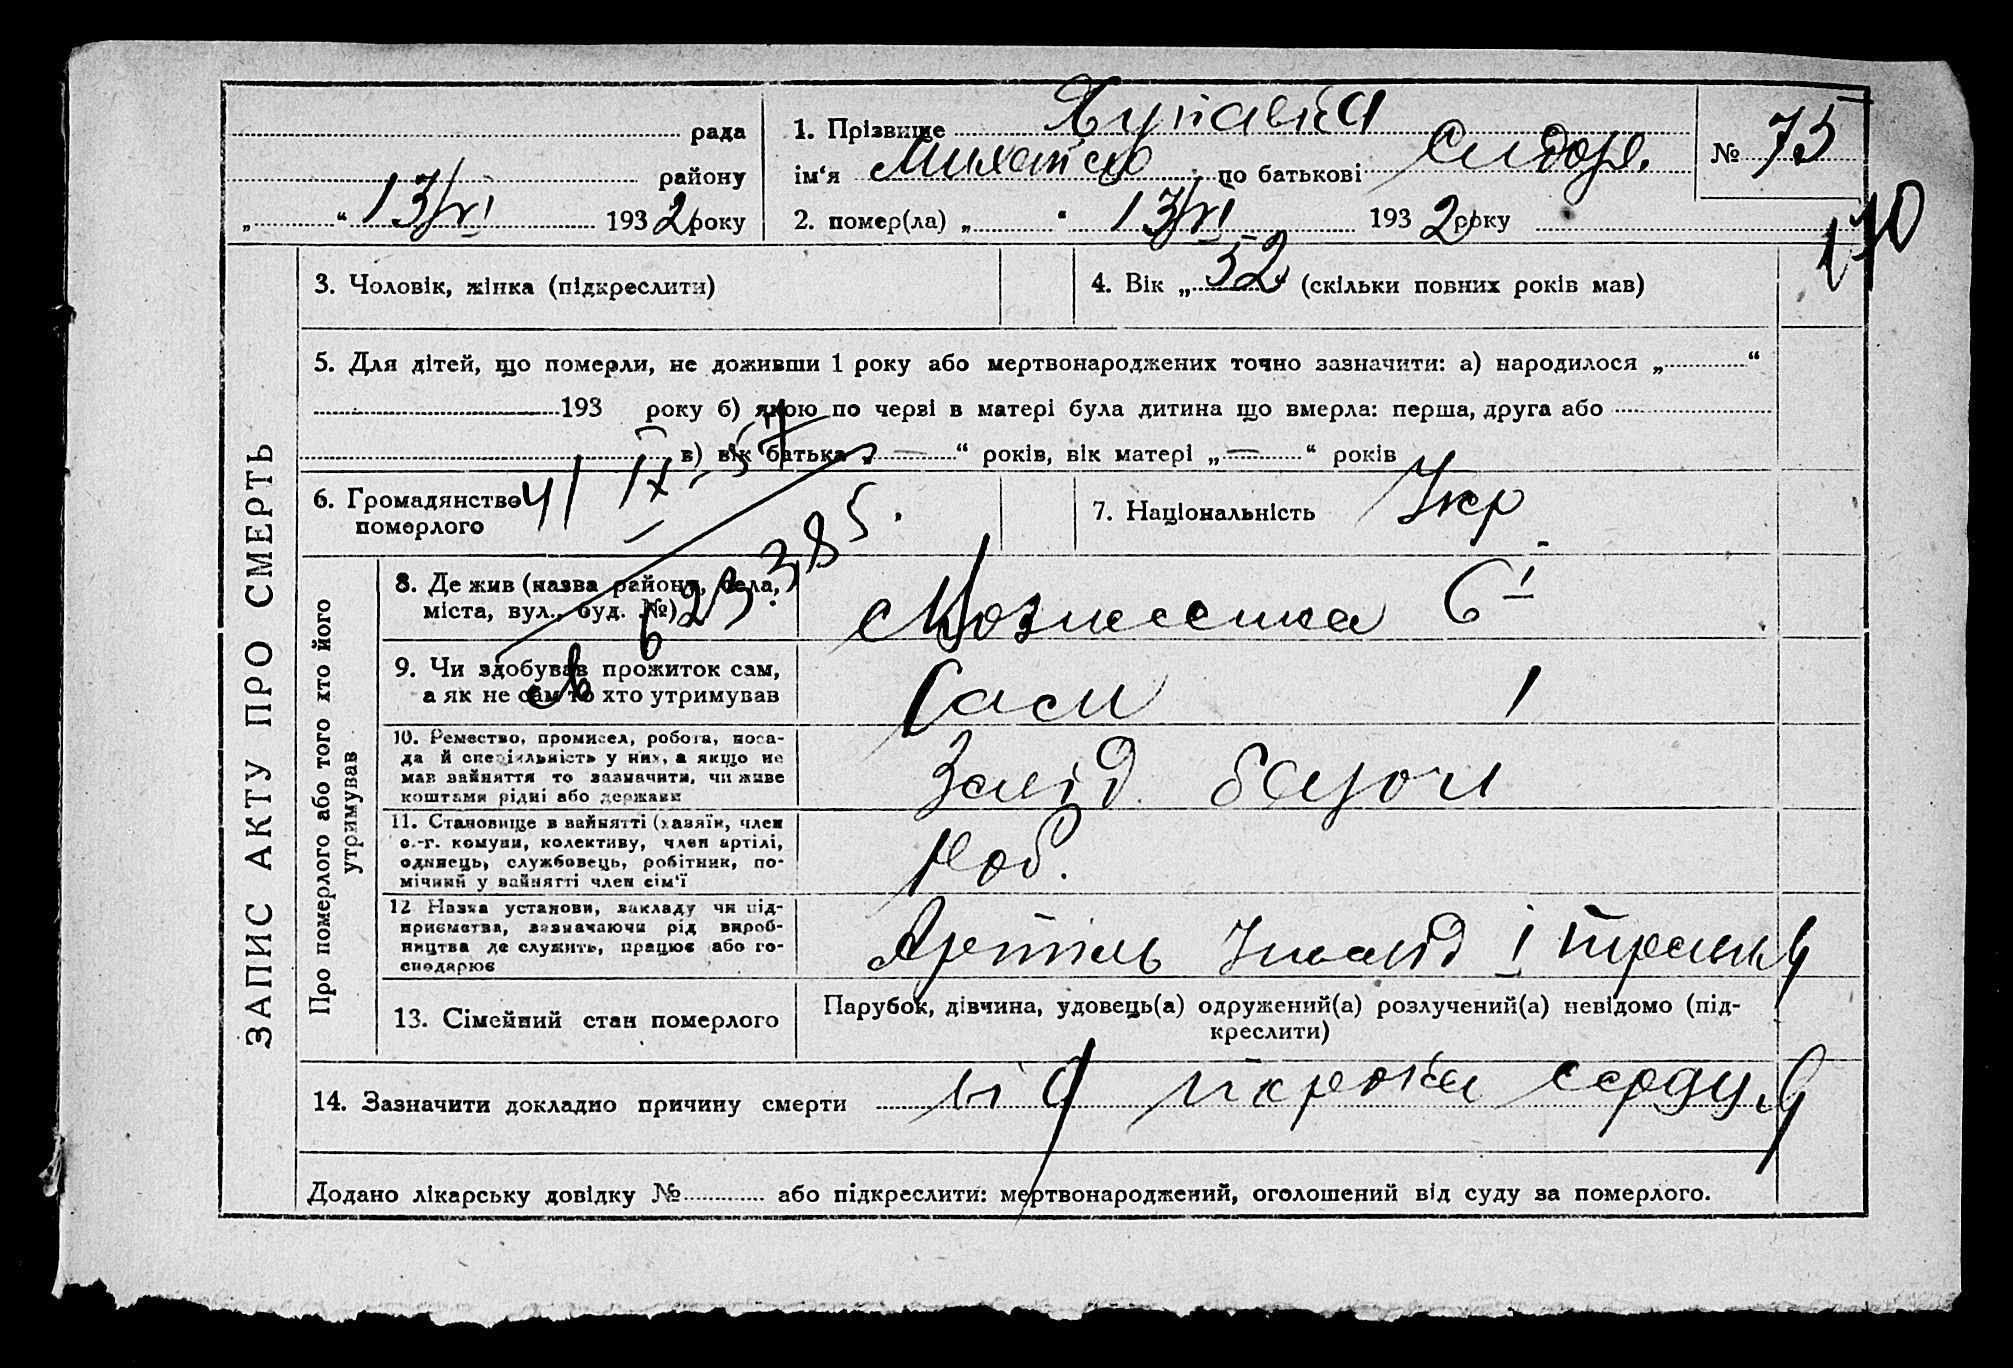 рада
району
„ “ 13/VI 1932 року
1. Прізвище
ім‘я по батькові Сидор.
2. помер(ла) „ “ 13/VI 1932 року
№ 75
170
ЗАПИС АКТУ ПРО СМЕРТЬ
3. Чоловік, жінка (підкреслити)
4. Вік „ 52 (скільки повних років мав)
5. Для дітей, що померли, не доживши 1 року або мертвонароджених точно зазначити: а) народилося „ “
193 року б) якою по черві в матері була дитина що вмерла: перша, друга або
в) вік батька „ — “ років, вік матері „ — “ років
6. Громадянство
померлого
7. Національність Укр
Про померлого або того хто його
утримував
8. Де жив (назва району, села,
міста, вул., буд. №)
9. Чи здобував прожиток сам,
а як не сам то хто утримував
Сам
10. Ремество, промисел, робота, поса-
да й спеціяльність у них, а якщо не
мав зайняття то зазначити, чи живе
коштами рідні або держави
Завід.
11. Становище в зайнятті (хазяїн, член
с.-г. комуни, колективу, член артілі,
одинець, службовець, робітник, по-
мічний у зайнятті член сім‘ї
Роб.
12 Назва установи, закладу чи під-
приємства, зазначаючи рід вироб-
ництва де служить, працює або го-
сподарює
Артіль Інвалід
13. Сімейний стан померлого
Парубок, дівчина, удовець(а) одружений(а) розлучений(а) невідомо (під-
креслити)
14. Зазначити докладно причину смерти
Додано лікарську довідку № або підкреслити: мертвонароджений, оголошений від суду за померлого.